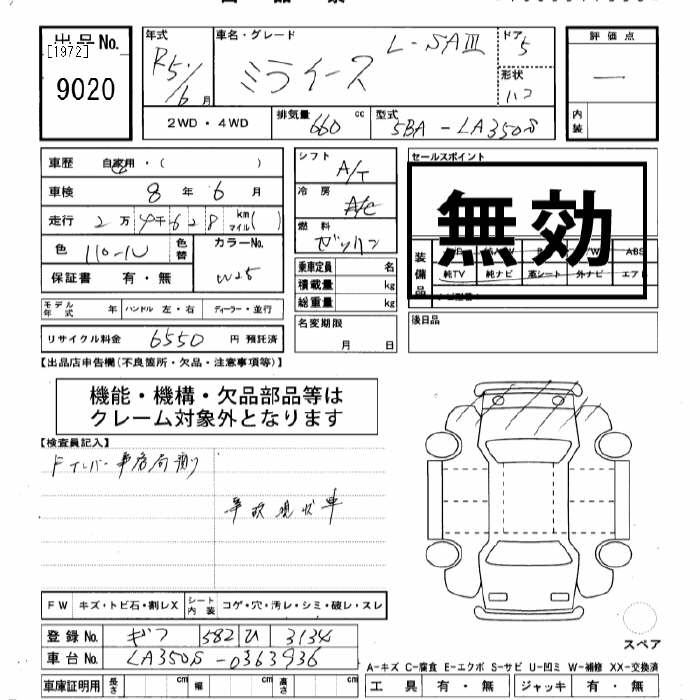 出品No.
[1972]
9020
年式
R5/6月
車名・グレード
ミライース L-SAⅢ
ドア 5
形状
ハコ
評価点
—
内装
2WD・4WD
排気量 660 cc
型式 5BA-LA350S
車歴 自家用・( )
車検 8年 6月
走行 2万4千628 km マイル( )
色 パール 色替
カラーNo. W25
保証書 有・無
モデル年式 年 ハンドル 左・右 ディーラー・並行
リサイクル料金 6550 円 預託済
シフト A/T
冷房 A/C
燃料 ガソリン
乗車定員 名
積載量 kg
総重量 kg
名変期限
月 日
セールスポイント
無効
装備品
ABS
純TV 純ナビ 革シート 外ナビ エアB
後日品
【出品店申告欄(不良箇所・欠品・注意事項等)】
機能・機構・欠品部品等は
クレーム対象外となります
【検査員記入】
事務局預り
事故現状車
FW キズ・トビ石・割レX シート内装 コゲ・穴・汚レ・シミ・破レ・スレ
登録No. ギフ 582 ひ 3134
車台No. LA350S-0363936
車庫証明用 長さ cm 幅 cm 高さ cm
スペア
A-キズ C-腐食 E-エクボ S-サビ U-凹ミ W-補修 XX-交換済
工具 有・無 ジャッキ 有・無